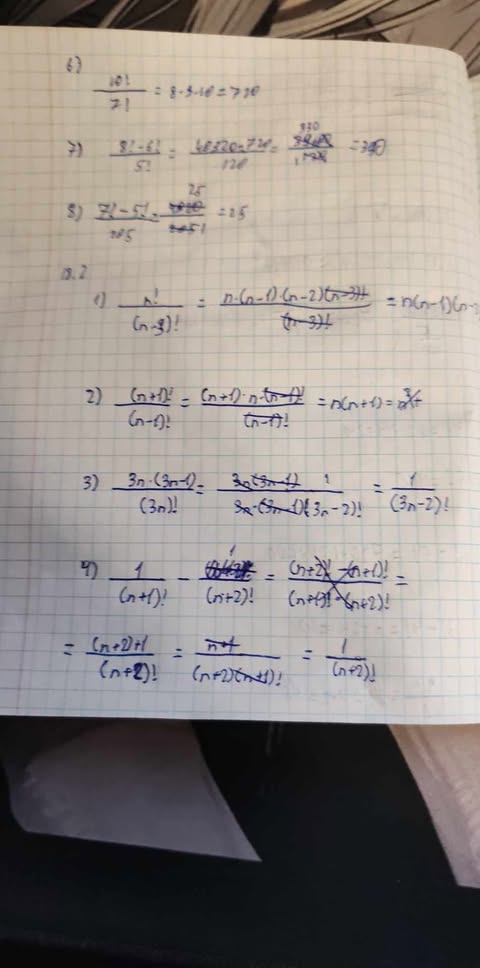 6)
10!/7! = 8·9·10 = 720
7) (8!-6!)/5! = (40320-720)/120 = 330
8) (7!-5!)/ = 25/ = 25
1) n!/(n-3)! = n·(n-1)·(n-2)(n-3)!/(n-3)! = n(n-1)(n-
2) (n+1)!/(n-1)! = (n+1)·n·(n-1)!/(n-1)! = n(n+1) =
3) 3n·(3n-1)/(3n)! = 3n(3n-1) 1/3n·(3n-1)(3n-2)! = 1/(3n-2)!
4) 1/(n+1)! - 1/(n+2)! = ((n+2)! - (n+1)!)/((n+1)! · (n+2)!) =
= ((n+2)+1)/(n+2)! = n+1/(n+2)(n+1)! = 1/(n+2)!